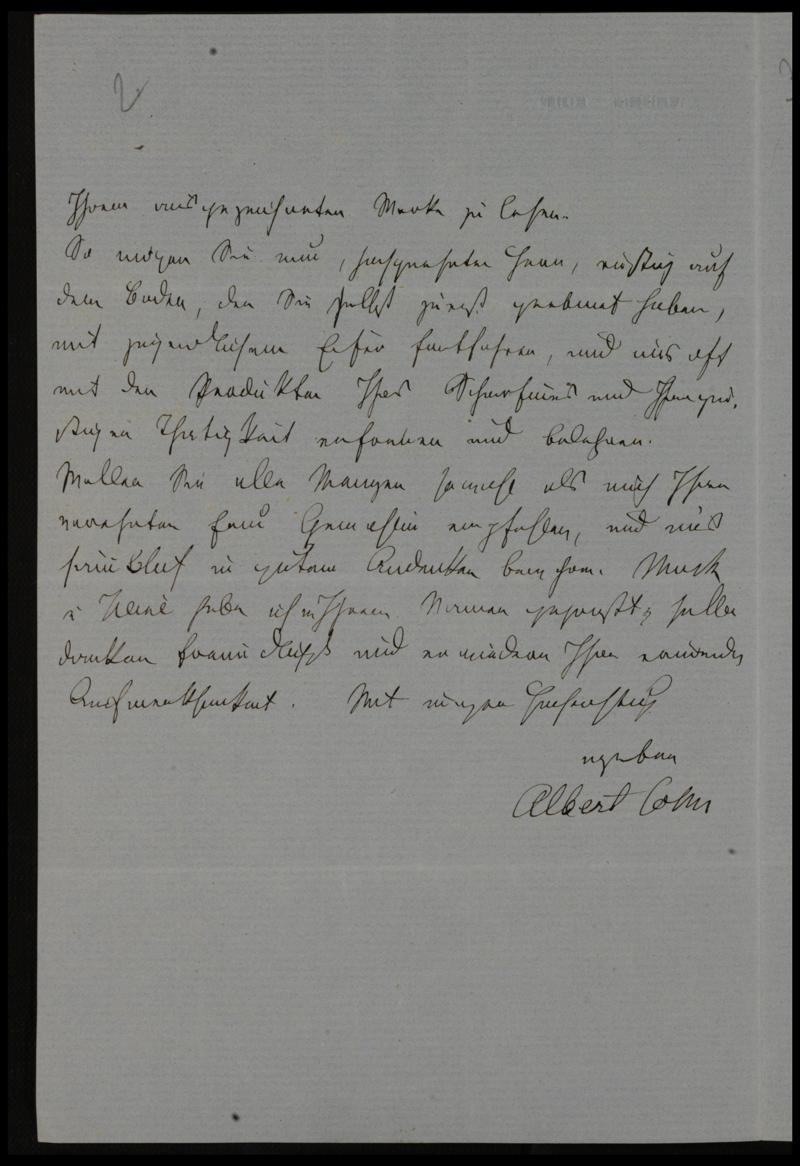 2
Ihrem ausgezeichneten Werke zu lesen.
So mögen Sie nun, hochgeehrter Herr, rüstig auf
dem Boden, den Sie selbst zuerst geebnet haben,
mit jugendlichem Eifer fortfahren, und uns oft
mit den Produkten Ihres Scharfsinns und Ihrer gei-
stigen Thätigkeit erfreuen und belehren.
Wollen Sie alle Mangen sowohl als mich Ihrer
verehrten Frau Gemahlin empfehlen, und uns
freundlich in gutem Andenken bewahren. Munk
u habe ich in Ihrem Namen gegrüßt, selbe
danken freundlichst und erwiedern Ihre
Aufmerksamkeit. Mit Hochachtung
ergeben
Albert Cohn